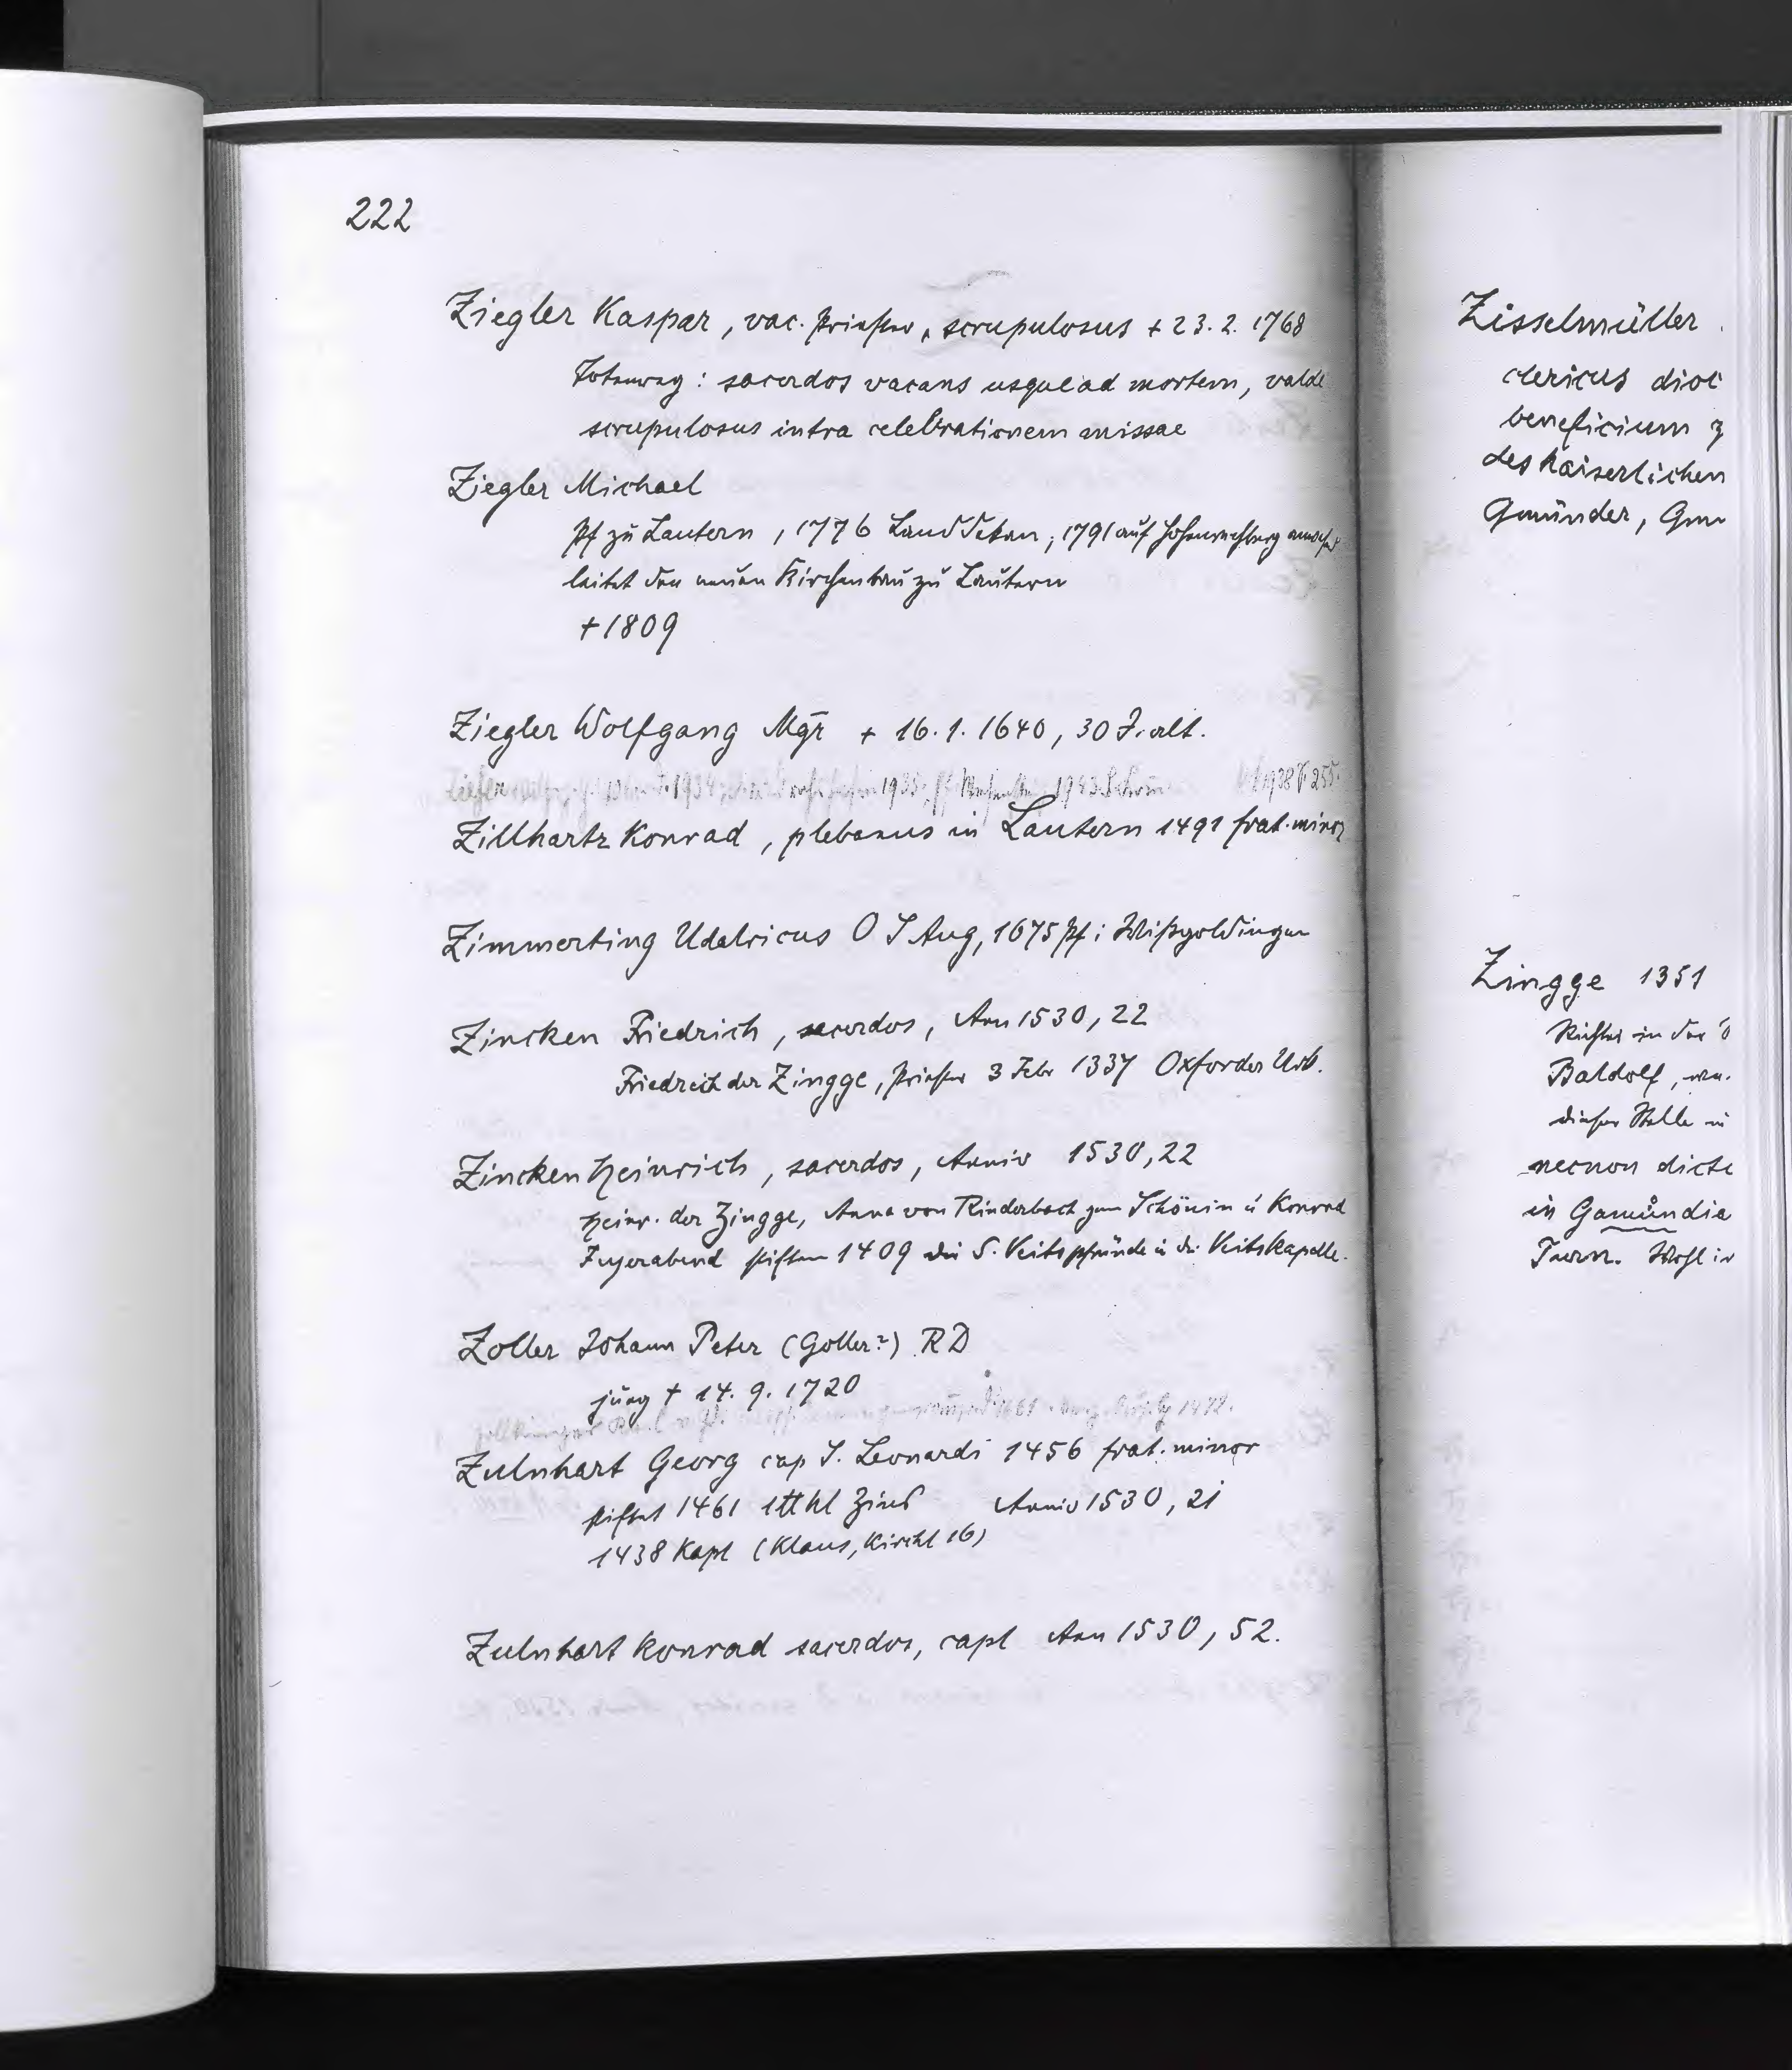 222
Ziegler Kaspar, vac. Priester, scrupulosus + 23. 2. 1768
: sacerdos vacans usque ad mortem, valde
scrupulosus intra celebrationem missae
Ziegler Michael
Pf zu Lautern, 1776 Landdekan, 1791 auf Hohenrechberg
leitet den neuen Kirchenbau zu Lautern
+ 1809
Ziegler Wolfgang Mgr + 16. 1. 1640, 30 J. alt.
Zillhartz Konrad, plebanus in Lautern 1491 frat. minor
Zimmerting Udalricus O S Aug, 1675 Pf i Wißgoldingen
Zincken Friedrich, sacerdos, Ann 1530, 22
Friedreich der Zingge, Priester 3 Febr 1337 Oxforder Urb.
Zincken Heinrich, sacerdos, Anniv 1530, 22
Heinr. der Zingge, Anna von Rinderbach zum Schönin u Konrad
Fuyerabend stiften 1409 die S. Veitspfründe i d. Veitskapelle.
Zoller Johann Peter (Goller?) RD
jung + 14. 9. 1720
Zulnhart Georg cap S. Leonardi 1456 frat. minor
stiftet 1461 1 ℔ hl Zins Anniv 1530, 21
1438 Kapl (Klaus, Kirchl 16)
Zulnhart Konrad sacerdos, capl Ann 1530, 52.
Zisselmüller
clericus dioc
beneficium z
des Kaiserlichen
Gmünder, Gm
Zingge 1351
Richter in der
Baldolf,
dieser Stelle in
necnon dicte
in Gamundia
Tuern. Wohl